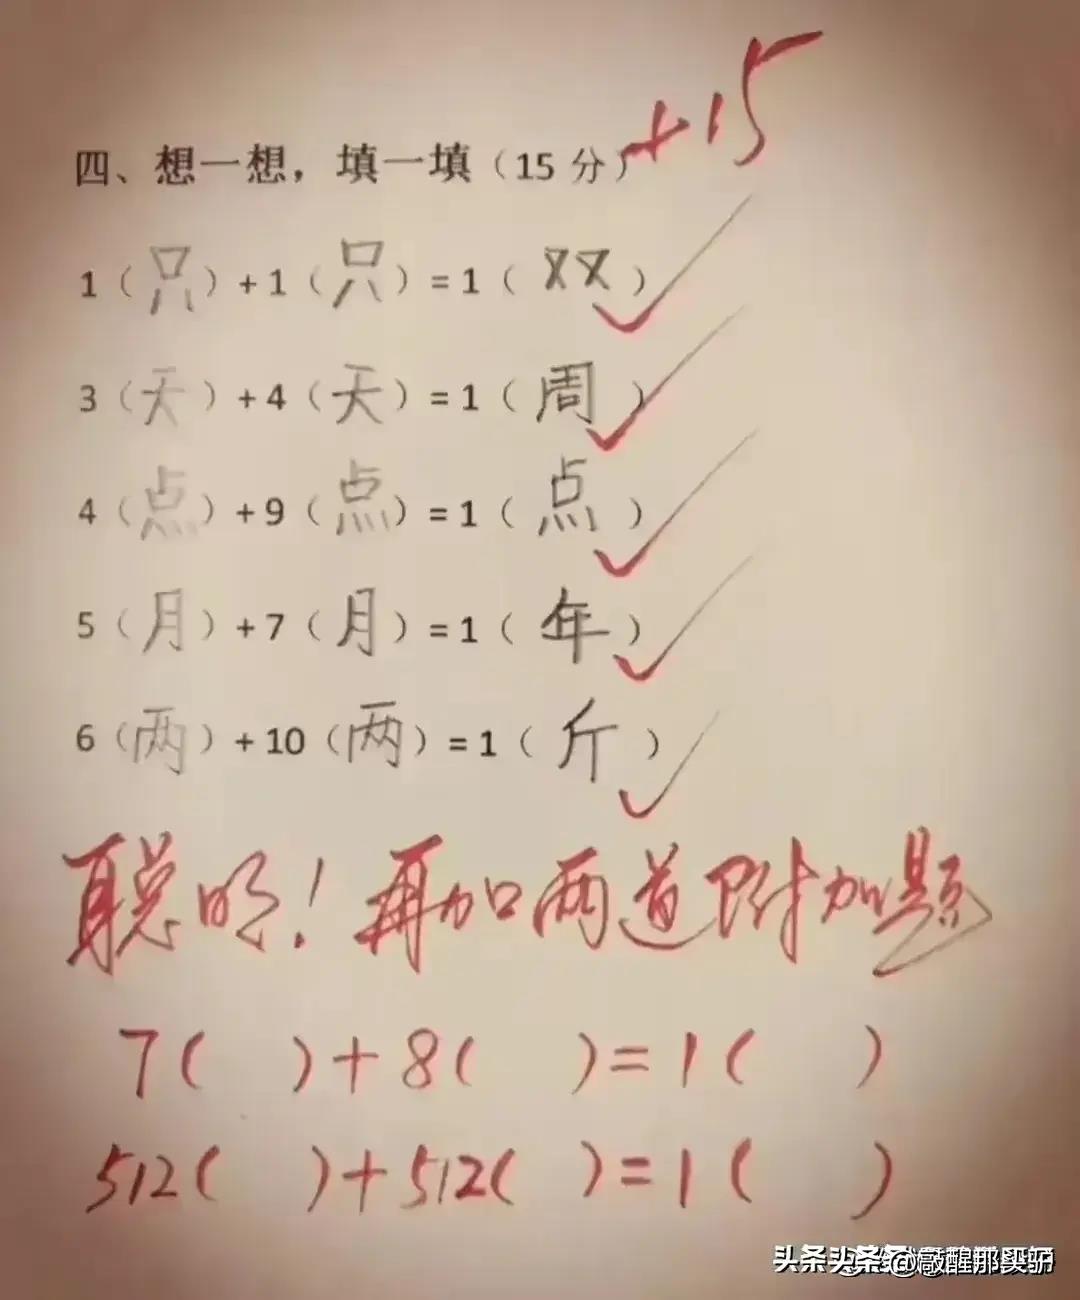 四、想一想，填一填（15 分）+15
1（只）+1（只）=1（双）
3（天）+4（天）=1（周）
4（点）+9（点）=1（点）
5（月）+7（月）=1（年）
6（两）+10（两）=1（斤）
聪明！再加两道附加题
7(  )+8(  )=1(  )
512(  )+512(  )=1(  )
头条 @敲醒那头驴